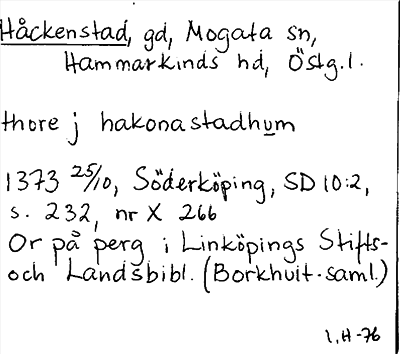 Håckenstad, gd, Mogata sn,
Hammarkinds hd, Östg.l.
thore j hakonastadhum
1373 25/10, Söderköping, SD 10:2,
s. 232, nr X 266
Or på perg i Linköpings Stifts-
och Landsbibl. (Borkhult-saml.)
1,H-76